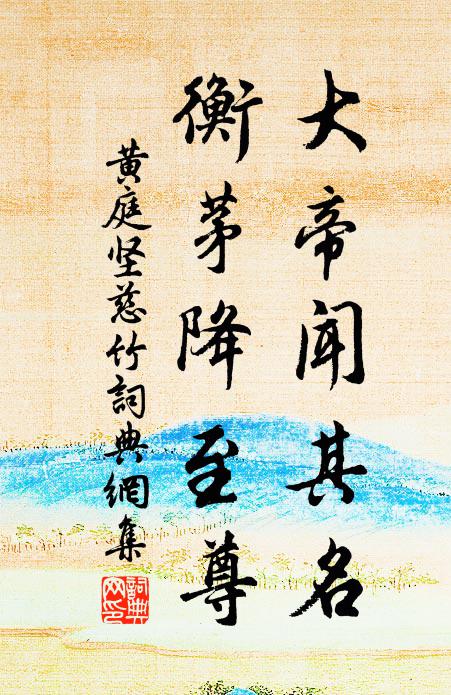 大帝聞其名
衡茅降至尊
黄庭坚慈竹詞典網集
詞典
网印